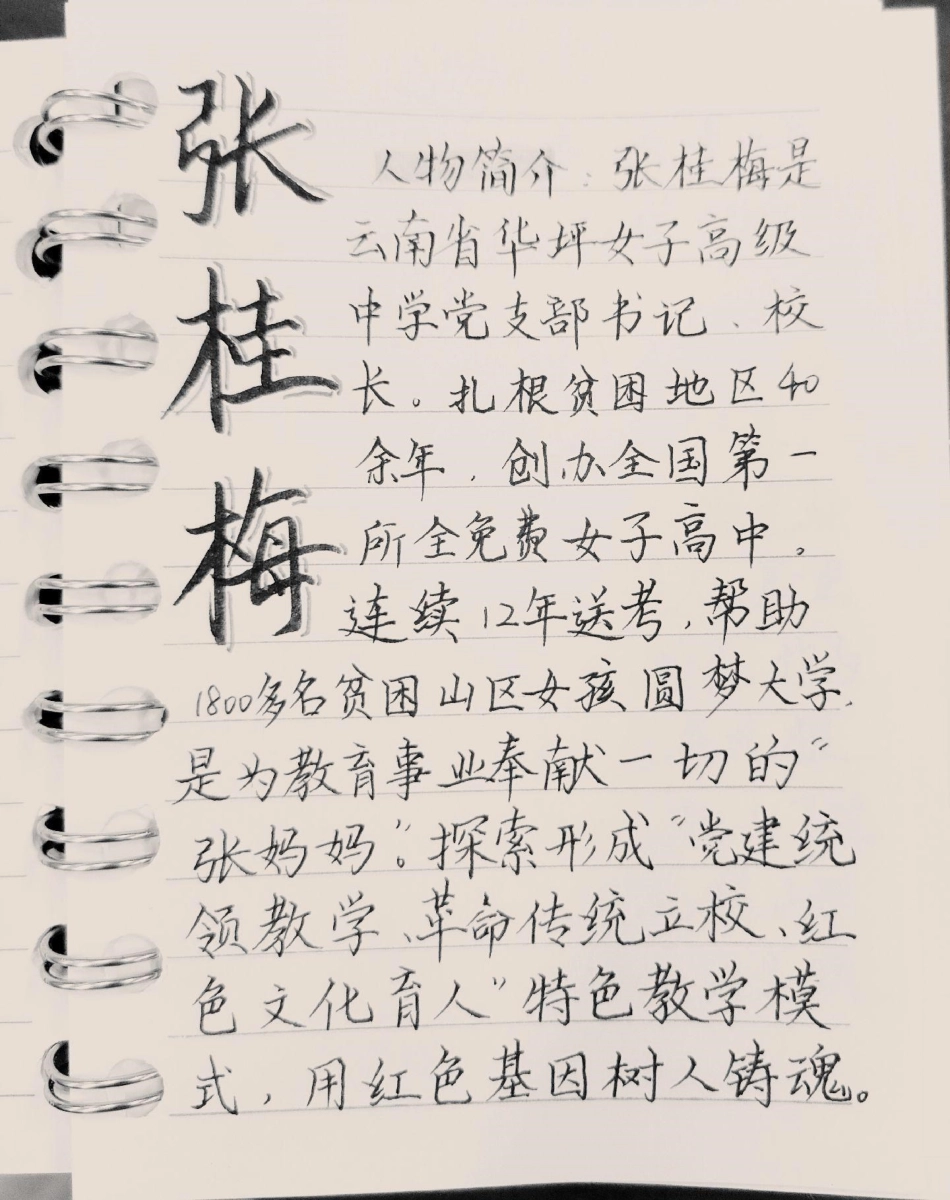 张桂梅
人物简介：张桂梅是
云南省华坪女子高级
中学党支部书记、校
长。扎根贫困地区40
余年，创办全国第一
所全免费女子高中。
连续12年送考，帮助
1800多名贫困山区女孩圆梦大学，
是为教育事业奉献一切的“
张妈妈”。探索形成“党建统
领教学、革命传统立校、红
色文化育人”特色教学模
式，用红色基因树人铸魂。